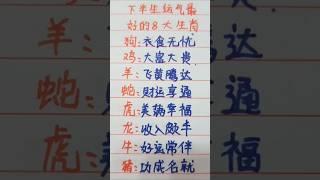 下半生运气最
好的8大生肖
狗:衣食无忧
鸡:大富大贵
羊:飞黄腾达
蛇:财运亨通
虎:美满幸福
龙:收入颇丰
牛:好运常伴
猪:功成名就
羊:
达
蛇:
通
虎:
福